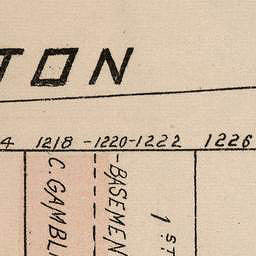 TON
4 1218 -1220-1222 1226
C. GAMBL
-BASEMEN
1 ST